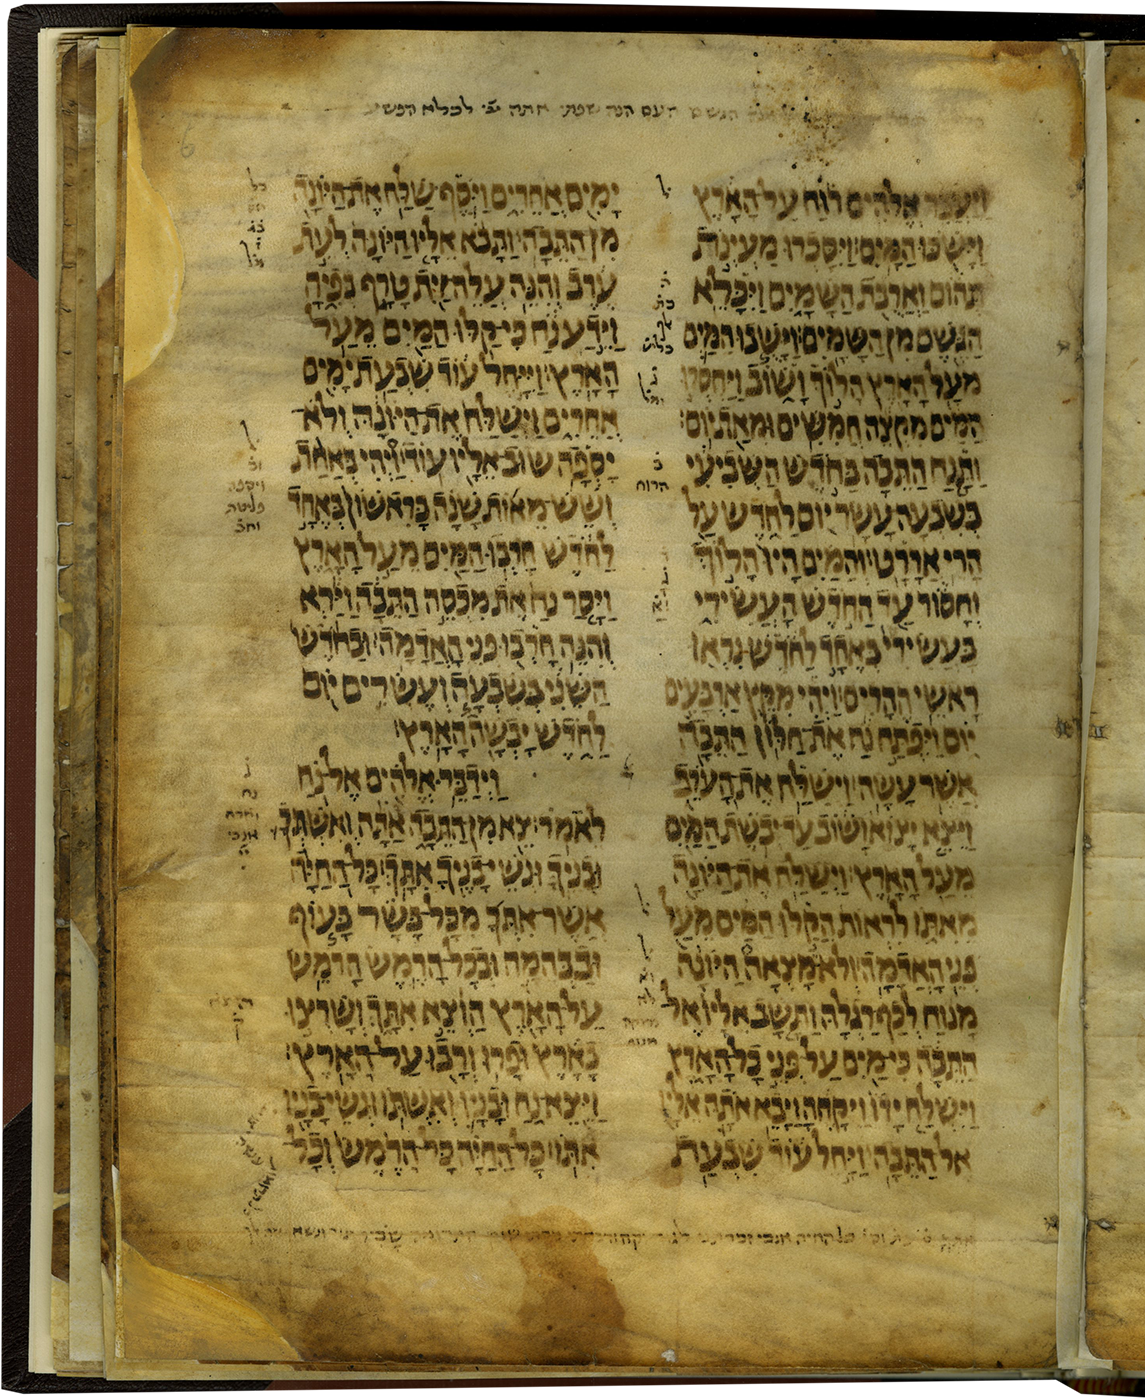 ויעבר אלהים רוח על הארץ
וישכו המים׃ ויסכרו מעינת
תהום וארבת השמים ויכלא
הגשם מן השמים׃ וישבו המים
מעל הארץ הלוך ושוב ויחסרו
המים מקצה חמשים ומאת יום׃
ותנח התבה בחדש השביעי
בשבעה עשר יום לחדש על
הרי אררט׃ והמים היו הלוך
וחסור עד החדש העשירי
בעשירי באחד לחדש נראו
ראשי ההרים׃ ויהי מקץ ארבעים
יום ויפתח נח את חלון התבה
אשר עשה׃ וישלח את הערב
ויצא יצוא ושוב עד יבשת המים
מעל הארץ׃ וישלח את היונה
מאתו לראות הקלו המים מעל
פני האדמה׃ ולא מצאה היונה
מנוח לכף רגלה ותשב אליו אל
התבה כי מים על פני כל הארץ
וישלח ידו ויקחה ויבא אתה אליו
אל התבה׃ ויחל עוד שבעת
ימים אחרים ויסף שלח את היונה
מן התבה׃ ותבא אליו היונה לעת
ערב והנה עלה זית טרף בפיה
וידע נח כי קלו המים מעל
הארץ׃ וייחל עוד שבעת ימים
אחרים וישלח את היונה ולא
יספה שוב אליו עוד׃ ויהי באחת
ושש מאות שנה בראשון באחד
לחדש חרבו המים מעל הארץ
ויסר נח את מכסה התבה וירא
והנה חרבו פני האדמה׃ ובחדש
השני בשבעה ועשרים יום
לחדש יבשה הארץ׃
וידבר אלהים אל נח
לאמר׃ צא מן התבה אתה ואשתך
ובניך ונשי בניך אתך׃ כל החיה
אשר אתך מכל בשר בעוף
ובבהמה ובכל הרמש הרמש
על הארץ הוצא אתך ושרצו
בארץ ופרו ורבו על הארץ׃
ויצא נח ובניו ואשתו ונשי בניו
אתו׃ כל החיה כל הרמש וכל